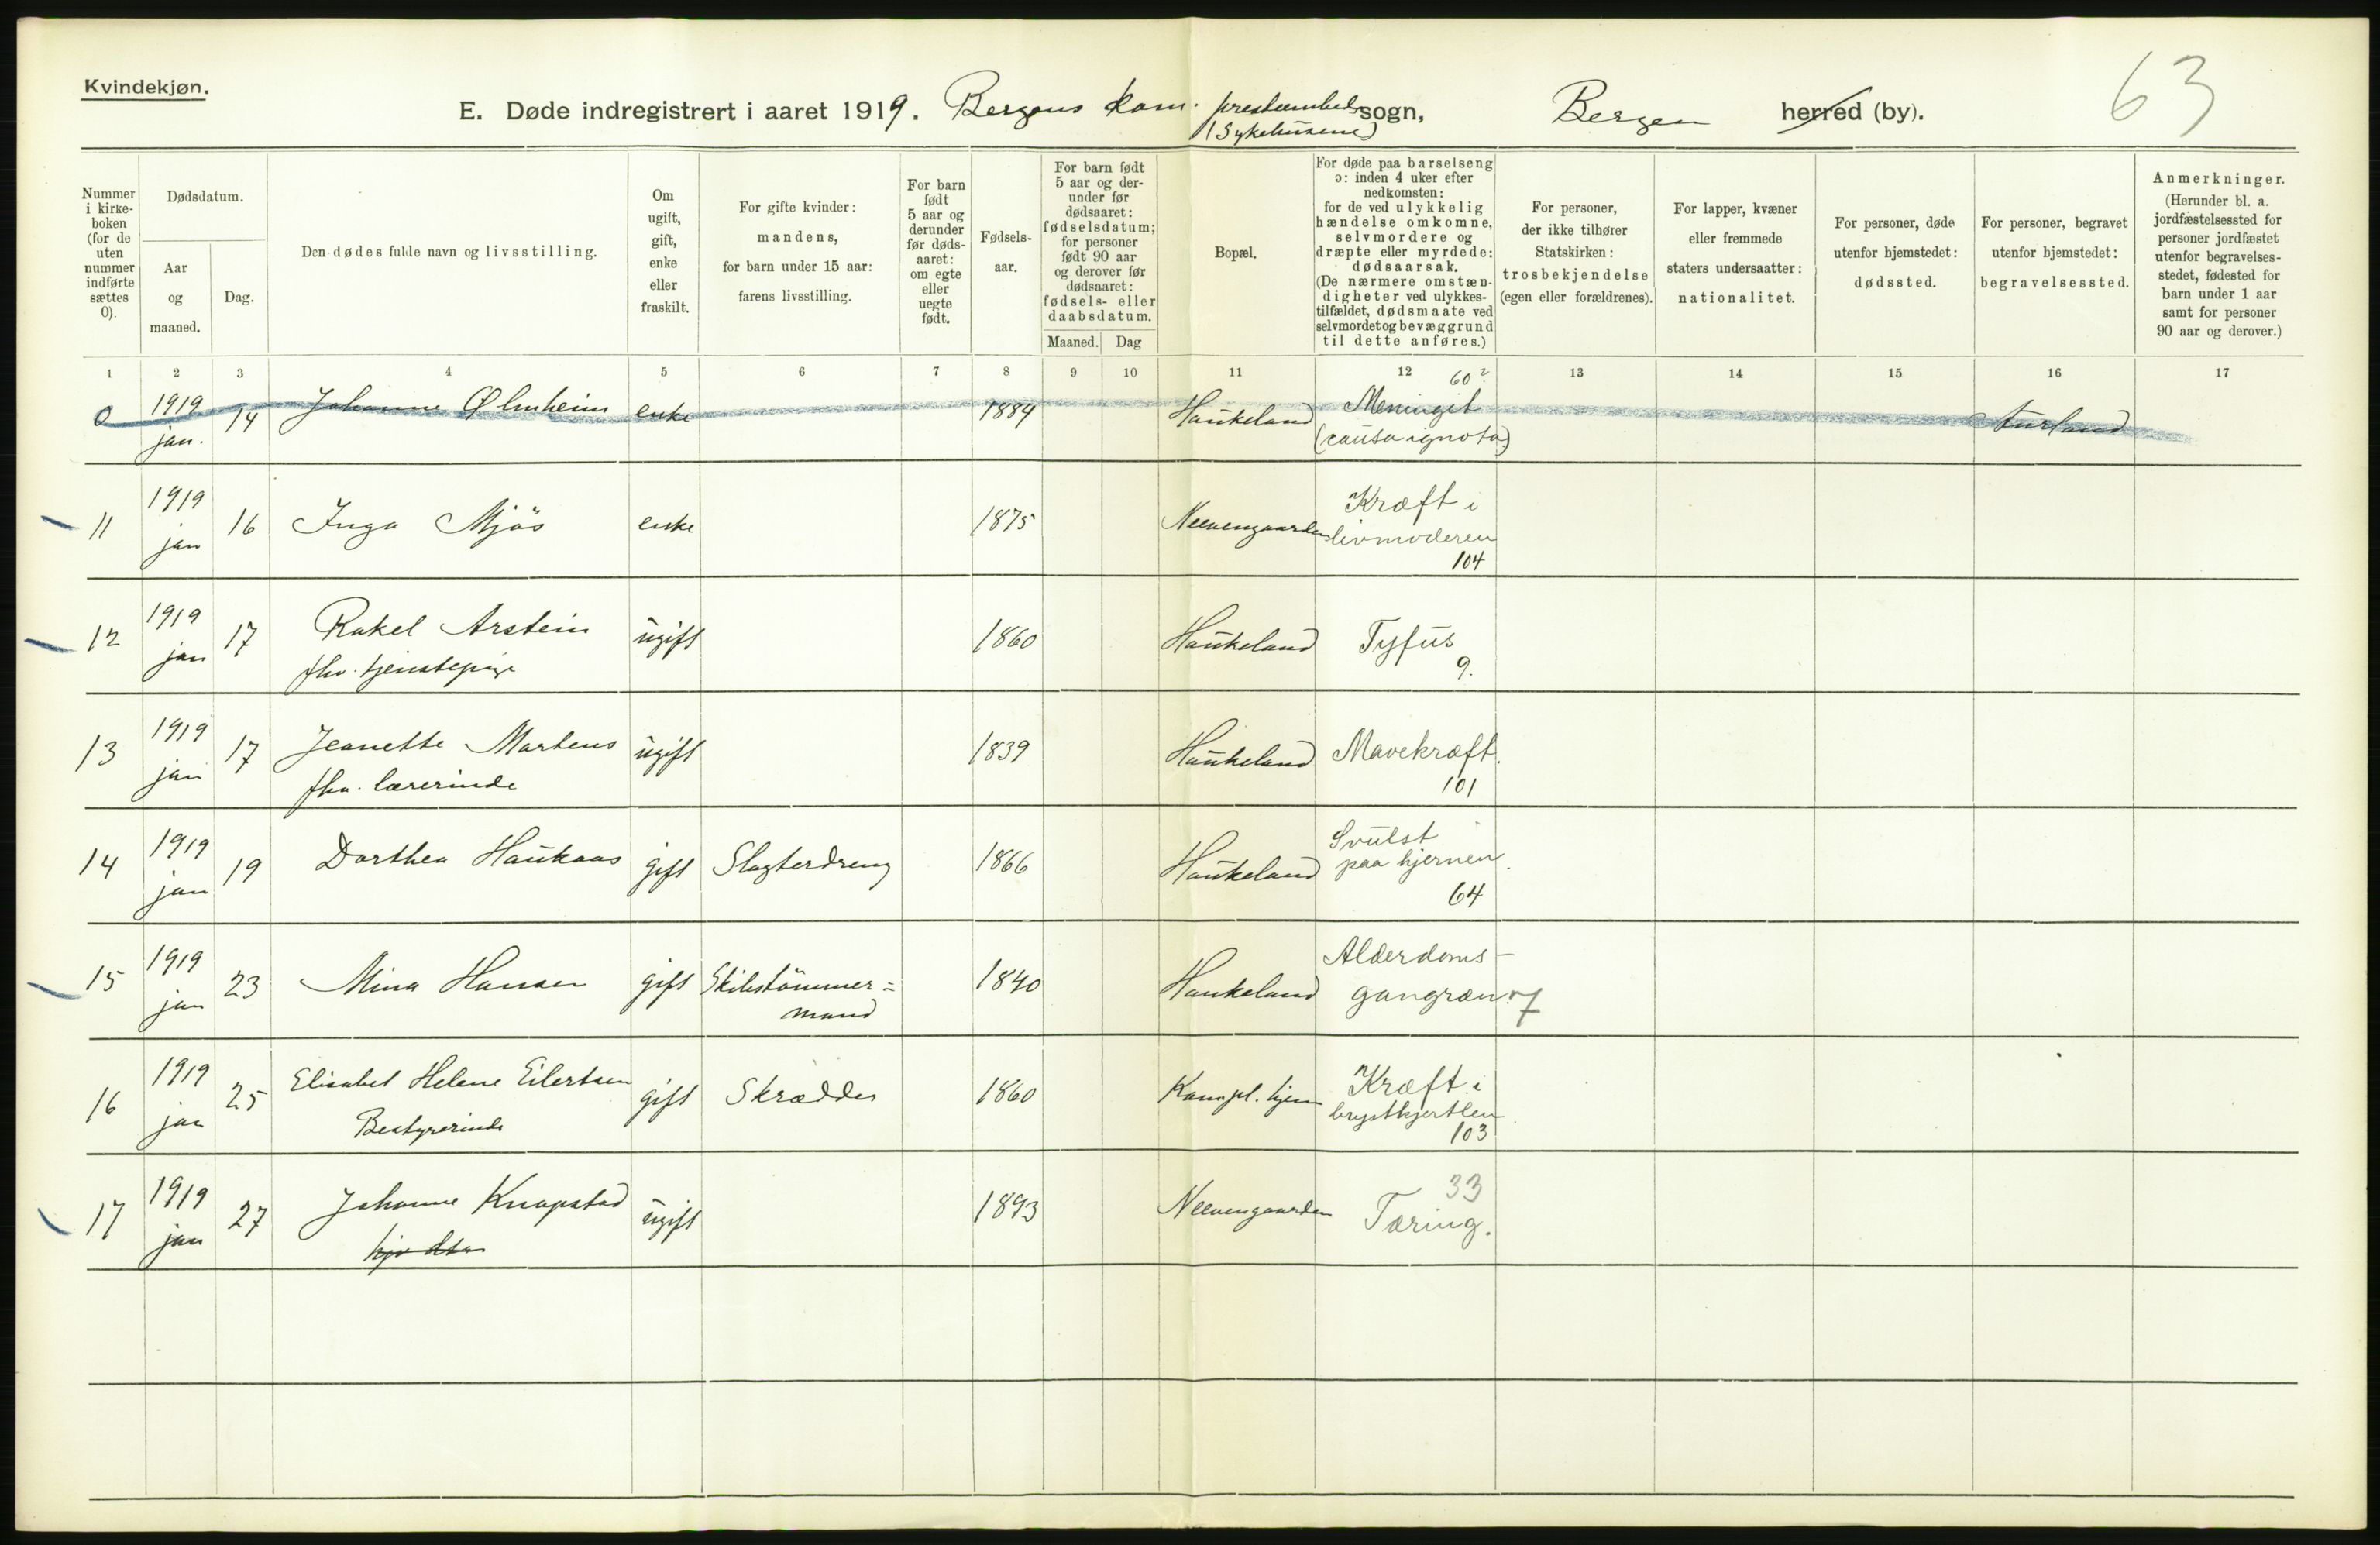 Kvindekjøn.
63
E. Døde indregistrert i aaret 1919. Bergens kom. presteembed sogn, Bergen herred (by).
(Sykehusene)
Nummer i kirkeboken (for de uten nummer indførte sættes 0).
Dødsdatum.
Aar og maaned.
Dag.
Den dødes fulde navn og livsstilling.
Om ugift, gift, enke eller fraskilt.
For gifte kvinder: mandens, for barn under 15 aar: farens livsstilling.
For barn født 5 aar og derunder før dødsaaret: om egte eller uegte født.
Fødselsaar.
For barn født 5 aar og derunder før dødsaaret: fødselsdatum; for personer født 90 aar og derover før dødsaaret: fødsels- eller daabsdatum.
Maaned. Dag
Bopæl.
For døde paa barselseng ɔ: inden 4 uker efter nedkomsten: for de ved ulykkelig hændelse omkomne, selvmordere og dræpte eller myrdede: dødsaarsak. (De nærmere omstændigheter ved ulykkestilfældet, dødsmaate ved selvmordet og bevæggrund til dette anføres.)
For personer, der ikke tilhører Statskirken: trosbekjendelse (egen eller forældrenes).
For lapper, kvæner eller fremmede staters undersaatter: nationalitet.
For personer, døde utenfor hjemstedet: dødssted.
For personer, begravet utenfor hjemstedet: begravelsessted.
Anmerkninger. (Herunder bl. a. jordfæstelsessted for personer jordfæstet utenfor begravelsesstedet, fødested for barn under 1 aar samt for personer 90 aar og derover.)
1 2 3 4 5 6 7 8 9 10 11 12 13 14 15 16 17
0 1919 jan. 14 Johanne Ølmheim enke 1884 Haukeland Meningit (causa ignota) 60? Aurland
11 1919 jan 16 Inga Mjös enke 1875 Neevengaarden Kræft i livmoderen 104
12 1919 jan 17 Rakel Arstein fhv. tjenstepige ugift 1860 Haukeland Tyfus 9.
13 1919 jan 17 Jeanette Martens fhv. lærerinde ugift 1839 Haukeland Mavekræft. 101
14 1919 jan 19 Dorthea Haukaas gift Slagterdreng 1866 Haukeland Svulst paa hjernen. 64
15 1919 jan 23 Mina Hansen gift Skibstömmer=mand 1840 Haukeland Alderdoms-gangræn. 7
16 1919 jan 25 Elisabet Helene Eilertsen Bestyrerinde gift Skrædder 1860 Kampl. hjem Kræft i brystkjertlen 103
17 1919 jan 27 Johanne Knapstad ugift 1893 Neevengaarden Tæring. 33